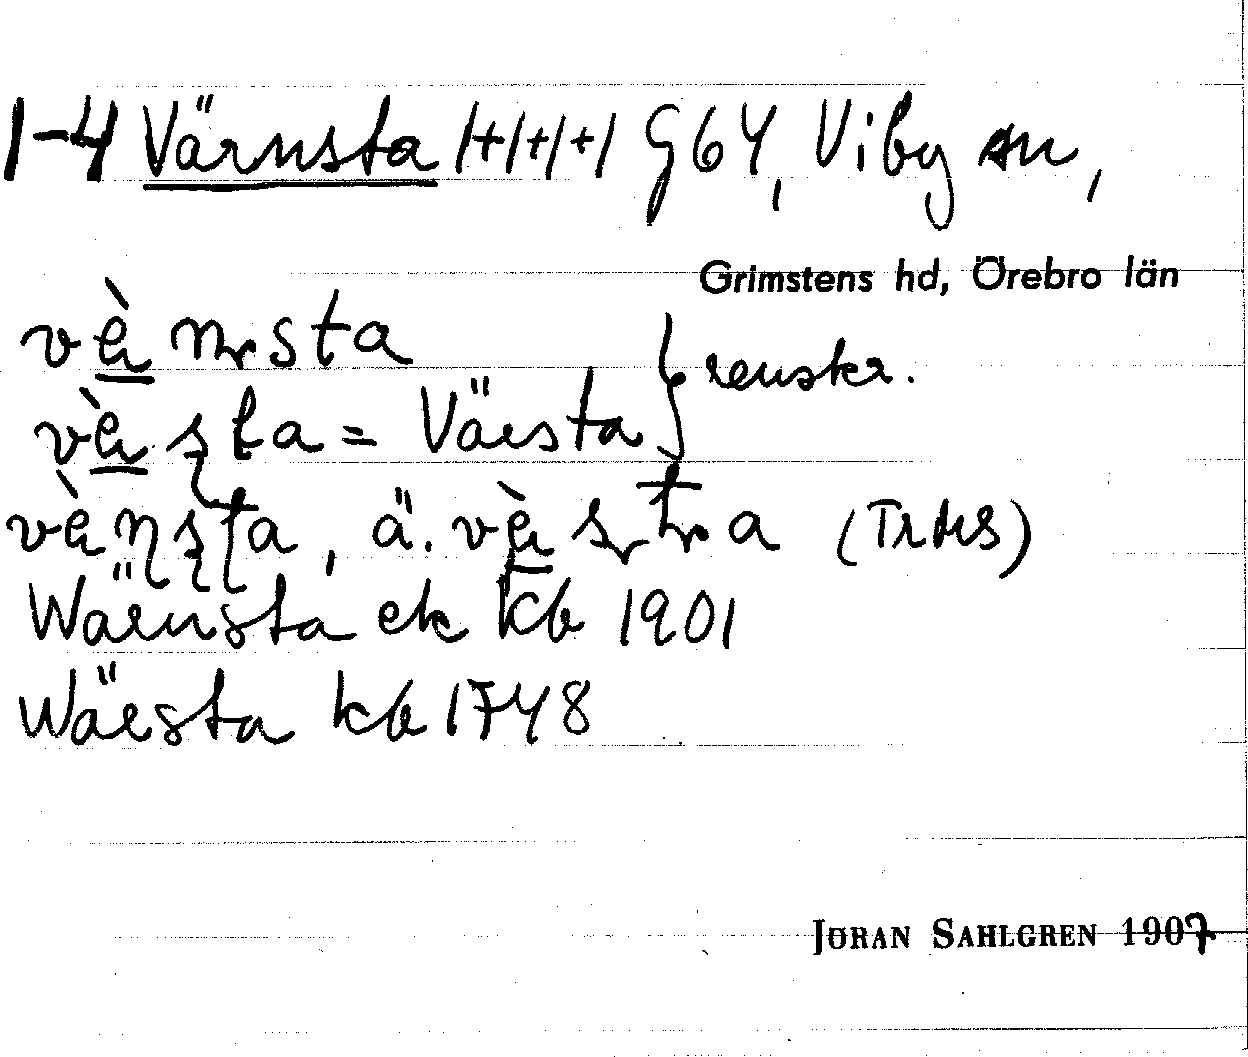 1-4 Värnsta 1+1+1+1 G64, Viby sn,
Grimstens hd, Örebro län
vä̀nrsta
vä̀ʂta = Väesta } renskr.
vä̀ɳʂʈa, ä. vä̀srtra (TrHS)
Wärnsta ek kb 1901
Wäesta kb 1748
JÖRAN SAHLGREN 1907